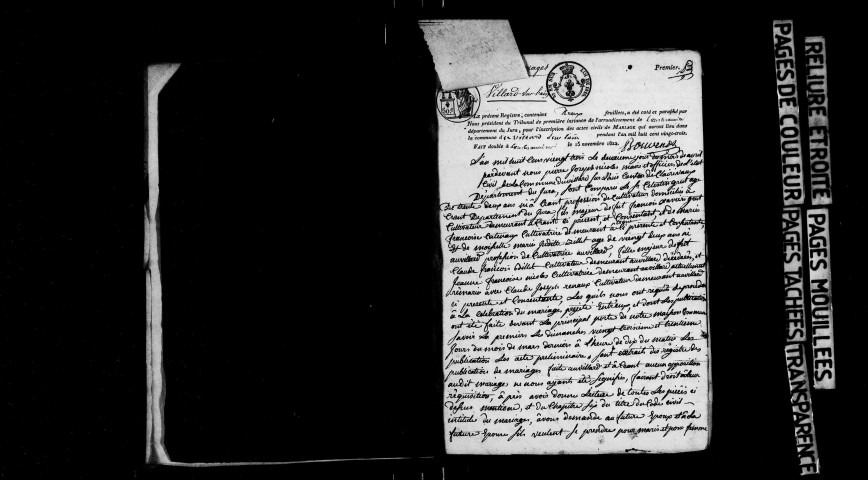 Mariages Premier.
Villard-sur-l'ain
Le présent Registre, contenant feuillets, a été coté et paraphé par
Nous président du Tribunal de première instance de l'arrondissement de Lons-le-saunier
département du Jura, pour l'inscription des actes civils de MARIAGE qui auront lieu dans
la commune de Villard sur l'ain pendant l'an mil huit cent vingt-trois.
FAIT double à Lons-le-saunier le 15 novembre 1822.
L'an mil huit cent vingt trois le deuxieme jour du mois d'avril
pardevant nous pierre Joseph nicolas maire et officier de l'etat
Civil de la Commune du villard sur l'ain Canton de Clairvaux
Département du Jura, sont Comparu le sr Celestin age
De trente deux ans né a Crant profession de Cultivateur domicilié à
Crant Departement du Jura fils majeur de fut francois
Cultivateur demeurant à Crant ci present et Consentant et de marie
francoise Cultivatrice demeurant à présente et Consentante
Et demoiselle marie Judith age de vingt deux ans né
au villard profession de Cultivatrice au villard, fille majeur de fut
Claude francois Cultivateur demeurant au villard décédé, et
Jeanne francoise nicolas Cultivatrice demeurant au villard actuellement
remarié avec Claude Joseph renaud Cultivateur demeurant au villard
ci presente et Consentante Les quels nous ont requis de procéder
à La Celebration du mariage projeté Entr'eux et dont Les publication
ont été faite devant La principal porte de notre maison Commune
savoir La premiere Les dimanches vingt troisieme et trentieme
Jours du mois de mars dernier à l'heure de dix du matin Les
publication Les acte preliminaire, sont extrait des registre des
publication de mariages faite au villard et à Crant aucun opposition
audit mariage ne nous ayant été Signifié, faisant droit à leur
requisition, à près avoir donné Lecture de toutes Les pièces ci
dessus mentioné, et du Chapitre six du titre du Code civil
intitulé du mariage, avons demandé au future Epoux et à la
future Epouse s'ils veulent se prendre pour mari et pour femme
RELIURE ÉTROITE
PAGES MOUILLÉES
PAGES DE COULEUR
PAGES TACHÉES
TRANSPARENCE